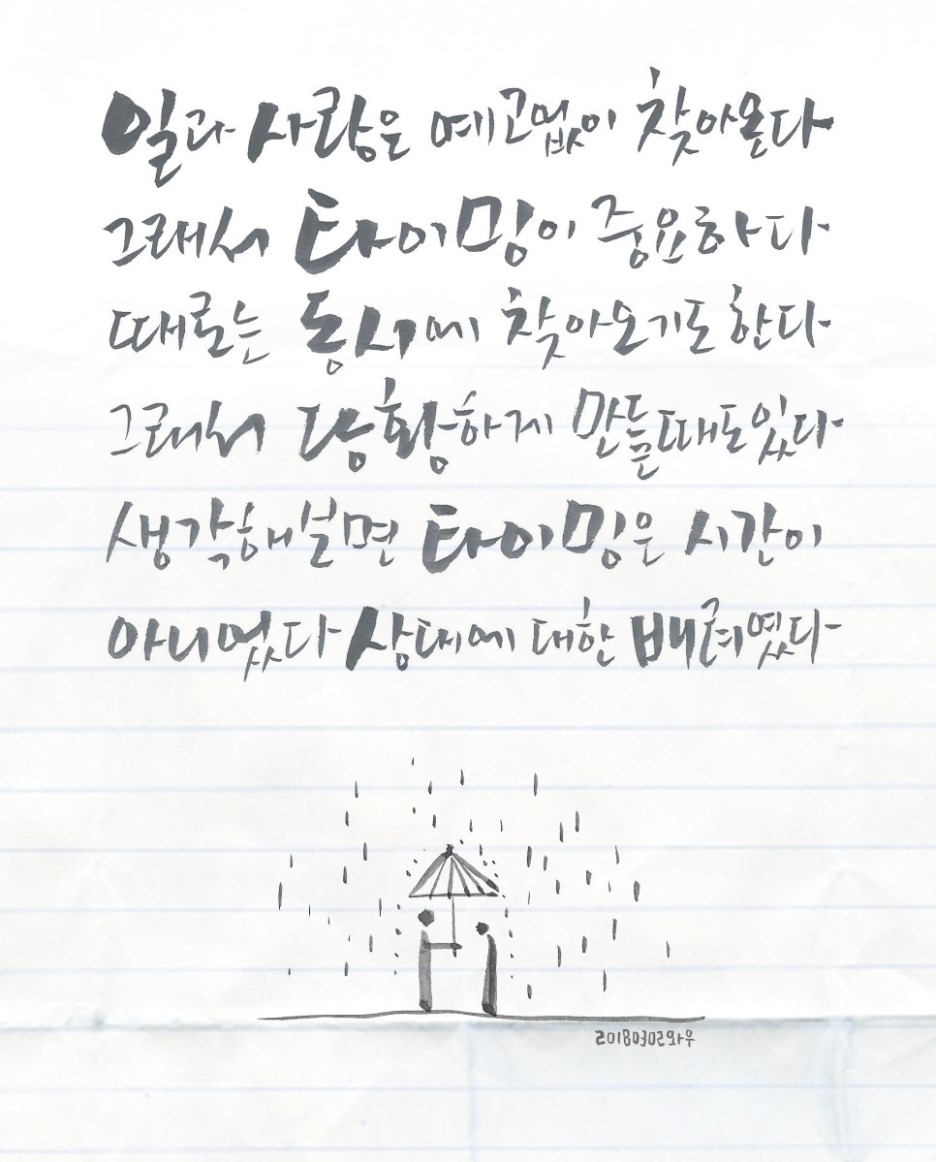 일과 사랑은 예고없이 찾아온다
그래서 타이밍이 중요하다
때로는 동시에 찾아오기도 한다
그래서 당황하게 만들때도있다
생각해보면 타이밍은 시간이
아니었다 상대에 대한 배려였다
20180302와우